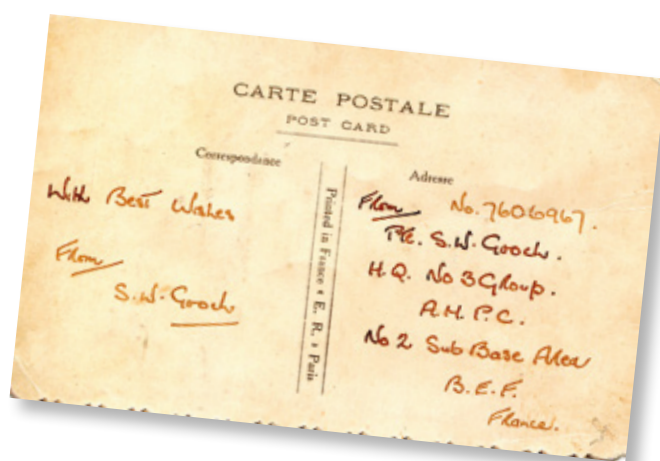 CARTE POSTALE
POST CARD
Correspondance
Adresse
With Best Wishes
From
S.W. Gooch
Printed in France • E. R. • Paris
From No. 7606967.
Pte. S.W. Gooch.
H.Q. No 3 Group.
A.M.P.C.
No 2 Sub Base Area
B.E.F.
France.